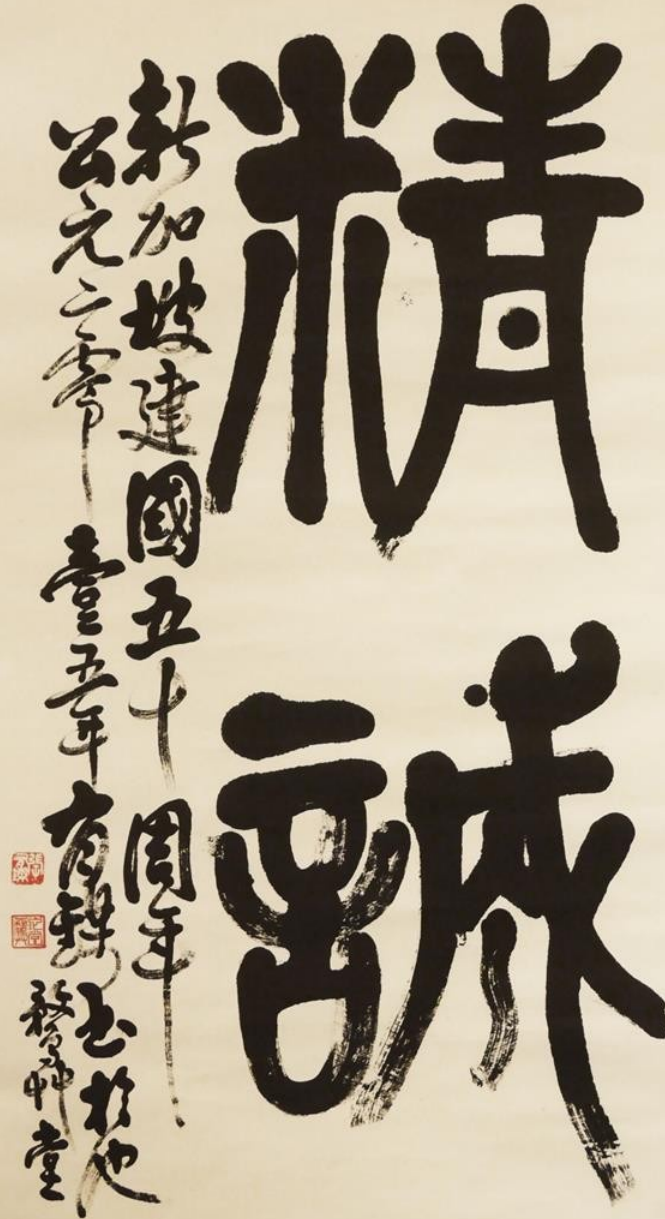 精誠
新加坡建國五十周年
公元二零壹五年有
書於
堂